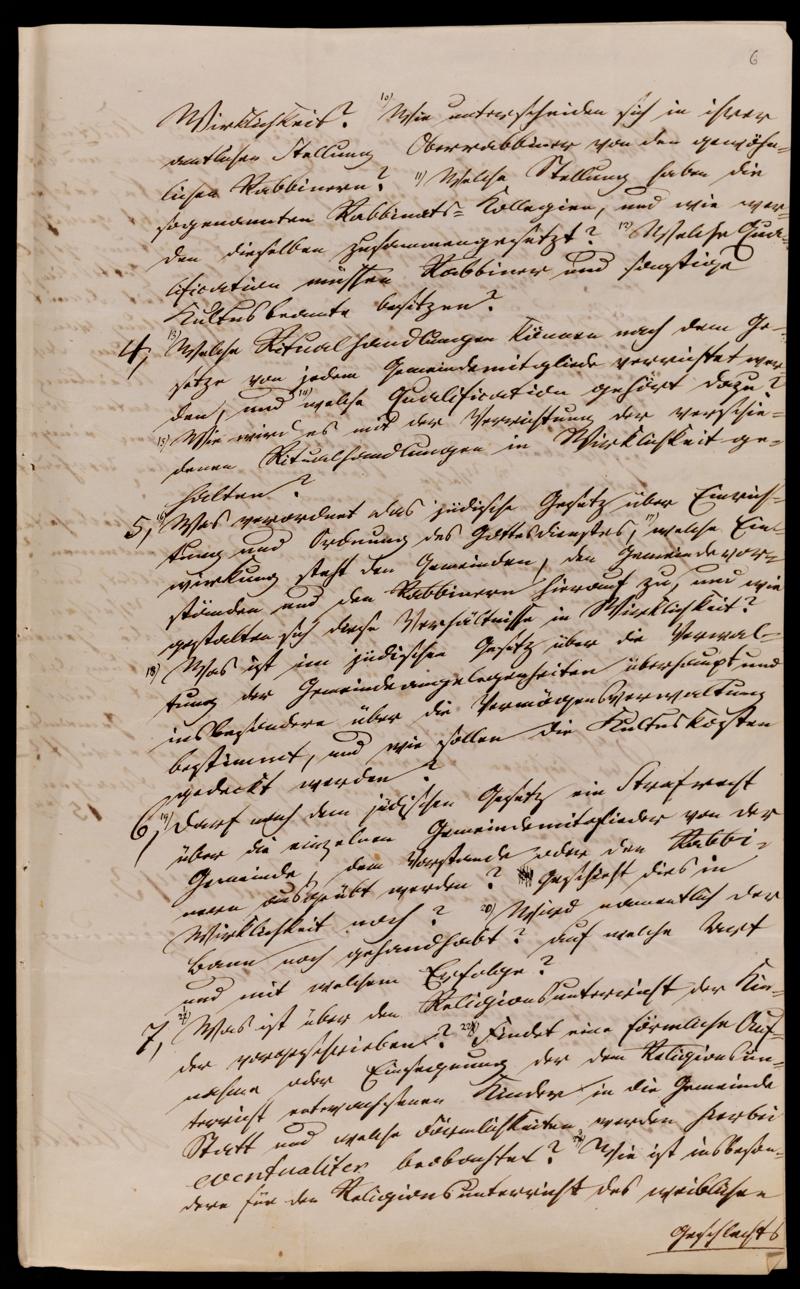 6
Wirklichkeit? 10) Wie unterscheiden sich in ihrer
amtlichen Stellung Oberrabbiner von den gewöhn=
lichen Rabbinern? 11) Welche Stellung haben die
sogenannten Rabbinats= Kollegien, und wie wer=
den dieselben zusammengesetzt? 12) Welche Qua=
lification müssen Rabbiner und sonstige
Kultusbeamte besitzen?
4, 13) Welche Ritualhandlungen können nach dem Ge=
setze von jedem Gemeindemitgliede verrichtet wer=
den, und 14) welche Qualification gehört dazu?
15) Wie wird es mit der Verrichtung der verschie=
denen Ritualhandlungen in Wirklichkeit ge=
halten?
5, 16) Was verordnet das jüdische Gesetz über Einrich=
tung und Ordnung des Gottesdienstes, 17) welche Ein=
wirkung steht den Gemeinden, den Gemeindevor=
ständen und den Rabbinern hierauf zu, und wie
gestalten sich diese Verhältnisse in Wirklichkeit?
18) Was ist im jüdischen Gesetz über die Verwal=
tung der Gemeindeangelegenheiten überhaupt und
insbesondere über die Vermögensverwaltung
bestimmt, und wie sollen die Kultuskosten
gedeckt werden?
6, 19) Darf nach dem jüdischen Gesetz ein Strafrecht
über die einzelnen Gemeindemitglieder von der
Gemeinde, dem Vorstande oder den Rabbi=
nern ausgeübt werden? Geschieht dies in
Wirklichkeit noch? 20) Wird namentlich der
Bann noch gehandhabt? auf welche Art
und mit welchem Erfolge?
7, 21) Was ist über den Religionsunterricht der Kin=
der vorgeschrieben? 22) Findet eine förmliche Auf=
nahme oder Einsegnung der dem Religionsun=
terricht entwachsenen Kinder in die Gemeinde
Statt und welche Förmlichkeiten werden hierbei
eventualiter beobachtet? 23) Wie ist insbeson=
dere für den Religionsunterricht des weiblichen
Geschlechts